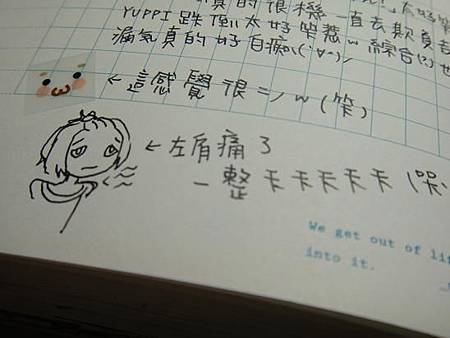 真的很機一直去欺負
YUPPI 跌倒 太好笑惹 w 綜合(?)也
漏氣真的好白痴\(˙∀˙)/
← 這感覺很ニノw(笑)
← 左肩痛了
一整天天天天天(哭
We get out of li
into it.